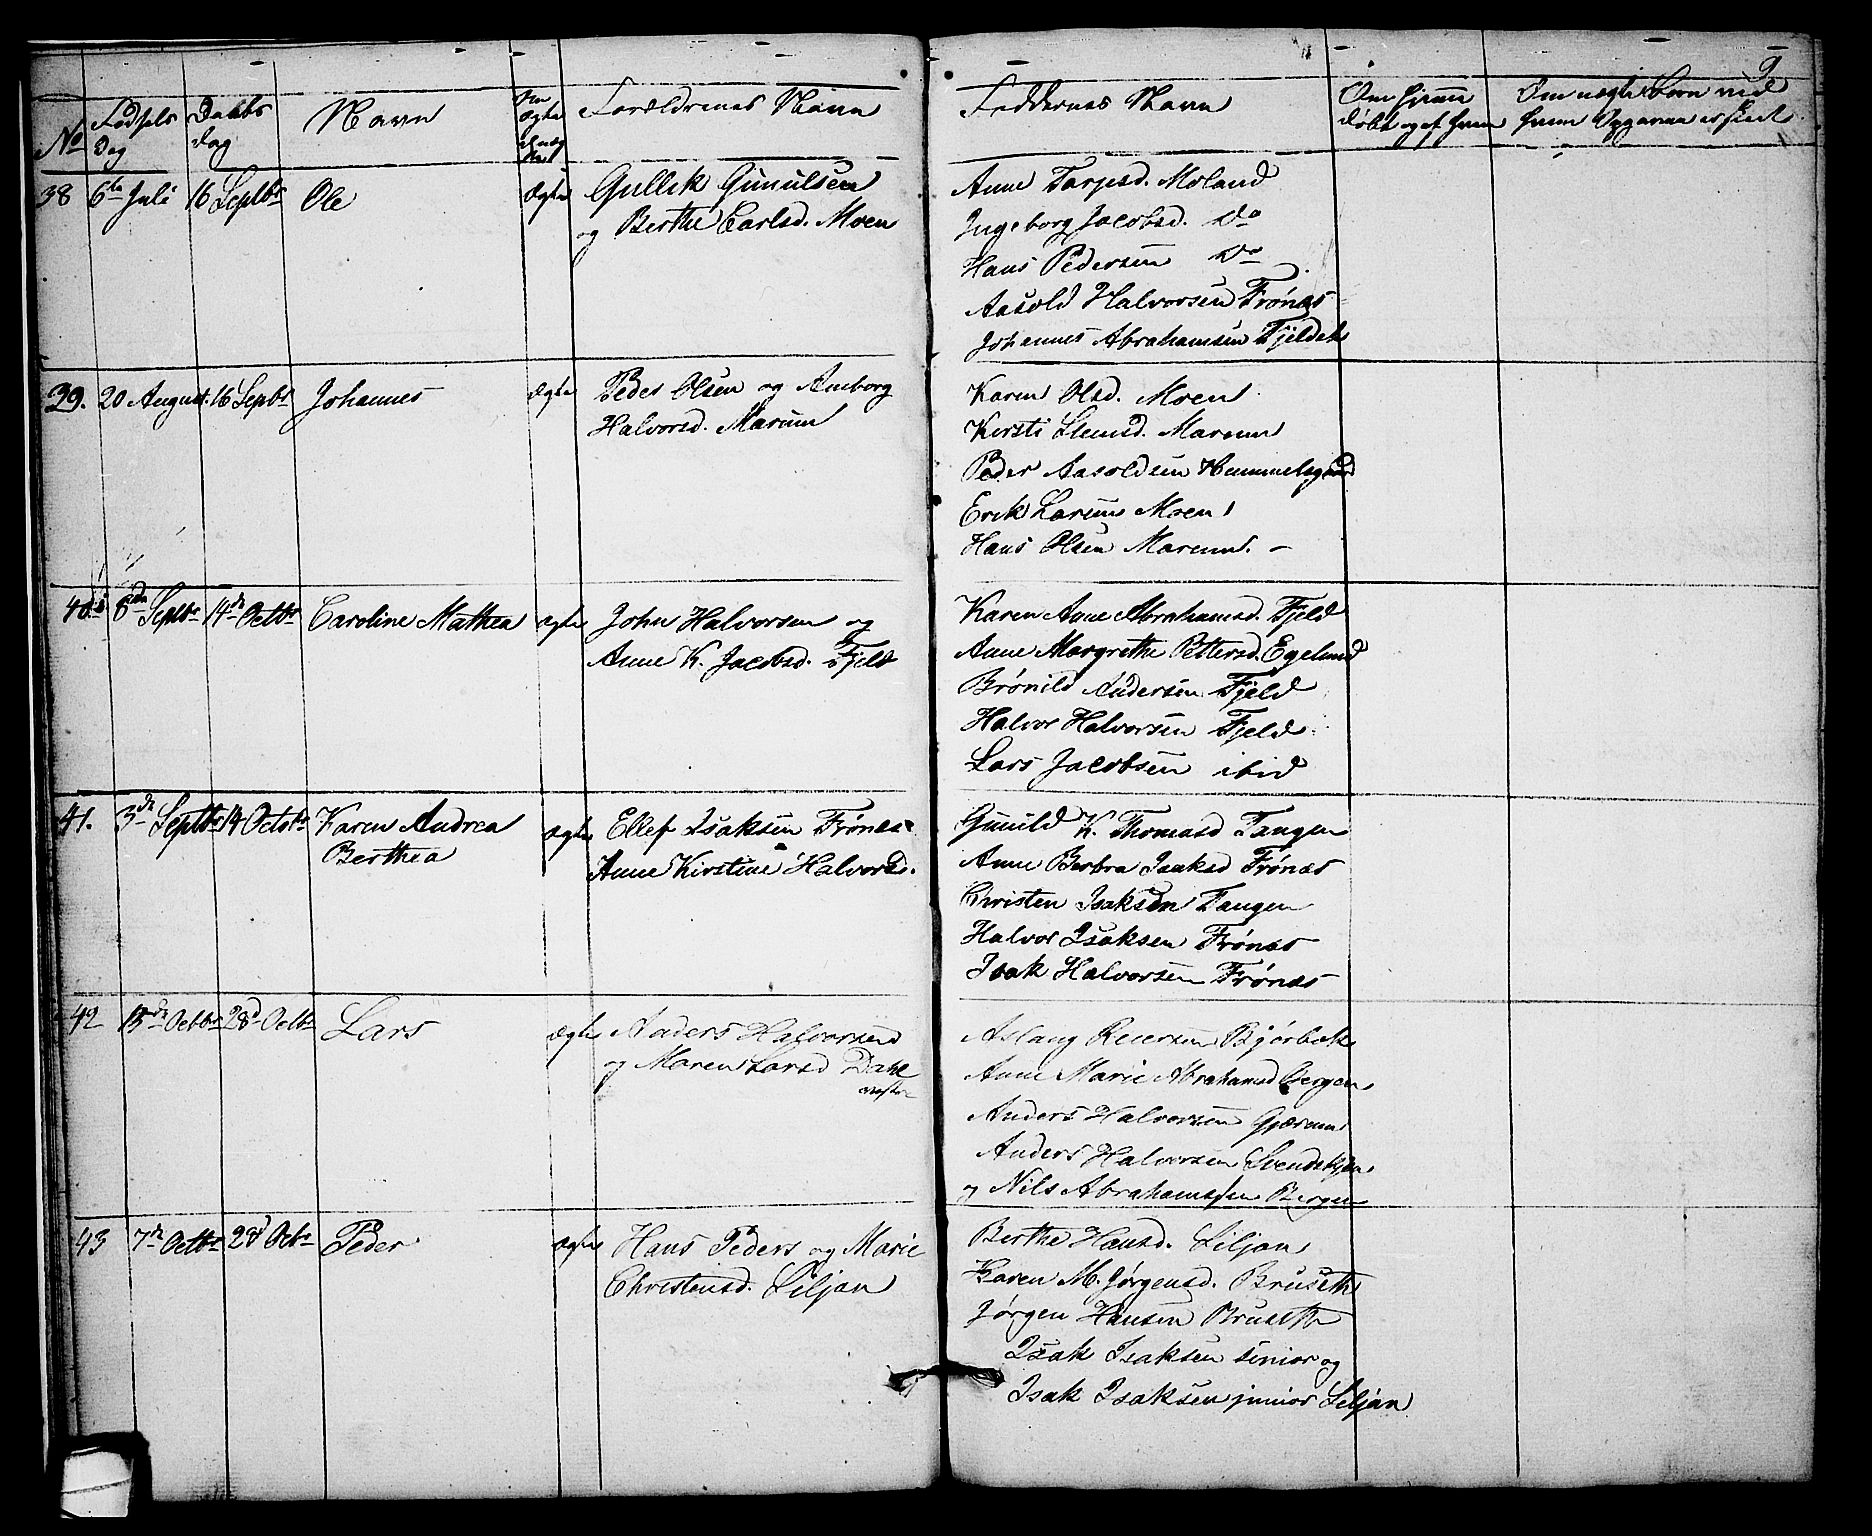 No Fødsels Dag Daabs dag Navn Om ægte eller uægte Forældrenes Navn Faddernes Navn Om hjemme døbt og af hvem Om uægte Barn ved hvem Opgaven er skeet
38 6te Juli 16 Septbr Ole ægte Gullik Gunulsen
og Berthe Carlsd. Moen
Anne Tarjesd. Moland
Ingeborg Jacobsd. Do
Hans Pedersen Do
Aasold Halvorsen Frönæs
Johannes Abrahamsen Fjeldet
39. 20 August 16 Septbr Johannes ægte Peder Olsen og Amborg
Halvorsd. Marum
Karen Olsd. Moen
Kirsti Marum
Peder Aasoldsen Hummelsgaard
Erik Larsen Moen
Hans Olsen Marum. –
40. 8de Septbr 14de Octbr Caroline Mathea ægte John Halvorsen og
Anne K. Jacobsd. Fjeld
Karen Anne Abrahamsd. Fjeld
Anne Margrethe Pettersd. Egelund
Brönild Andersen Fjeld
Halvor Halvorsen Fjeld
Lars Jacobsen ibid
41. 3de Septbr 14 Octobr Karen Andrea
Berthea
ægte Ellef Isaksen Frönæs
Anne Kirstine Halvorsd.
Gunild K. Thomasd Tangen
Anne Berbra Isaksd Frönæs
Christen Isaksen Tangen
Halvor Isaksen Frönæs
Isak Halvorsen Frönæs
42 13de Octbr 28d Octbr Lars ægte Anders Halvorsen
og Maren Larsd Dahl
Aslaug Reiersen Bjórbæk
Anne Marie Abrahamsd Bergen
Anders Halvorsen Gjærum
Anders Halvorsen
og Nils Abrahamsen Bergen
43 7de Octbr 28d Octbr Peder ægte Hans Peders og Marie
Christensd. Liljan
Berthe Hansd. Liljan
Karen M. Jórgensd. Bruseth
Jórgen Hansen Bruseth
Isak Isaksen senior og
Isak Isaksen junior Liljan